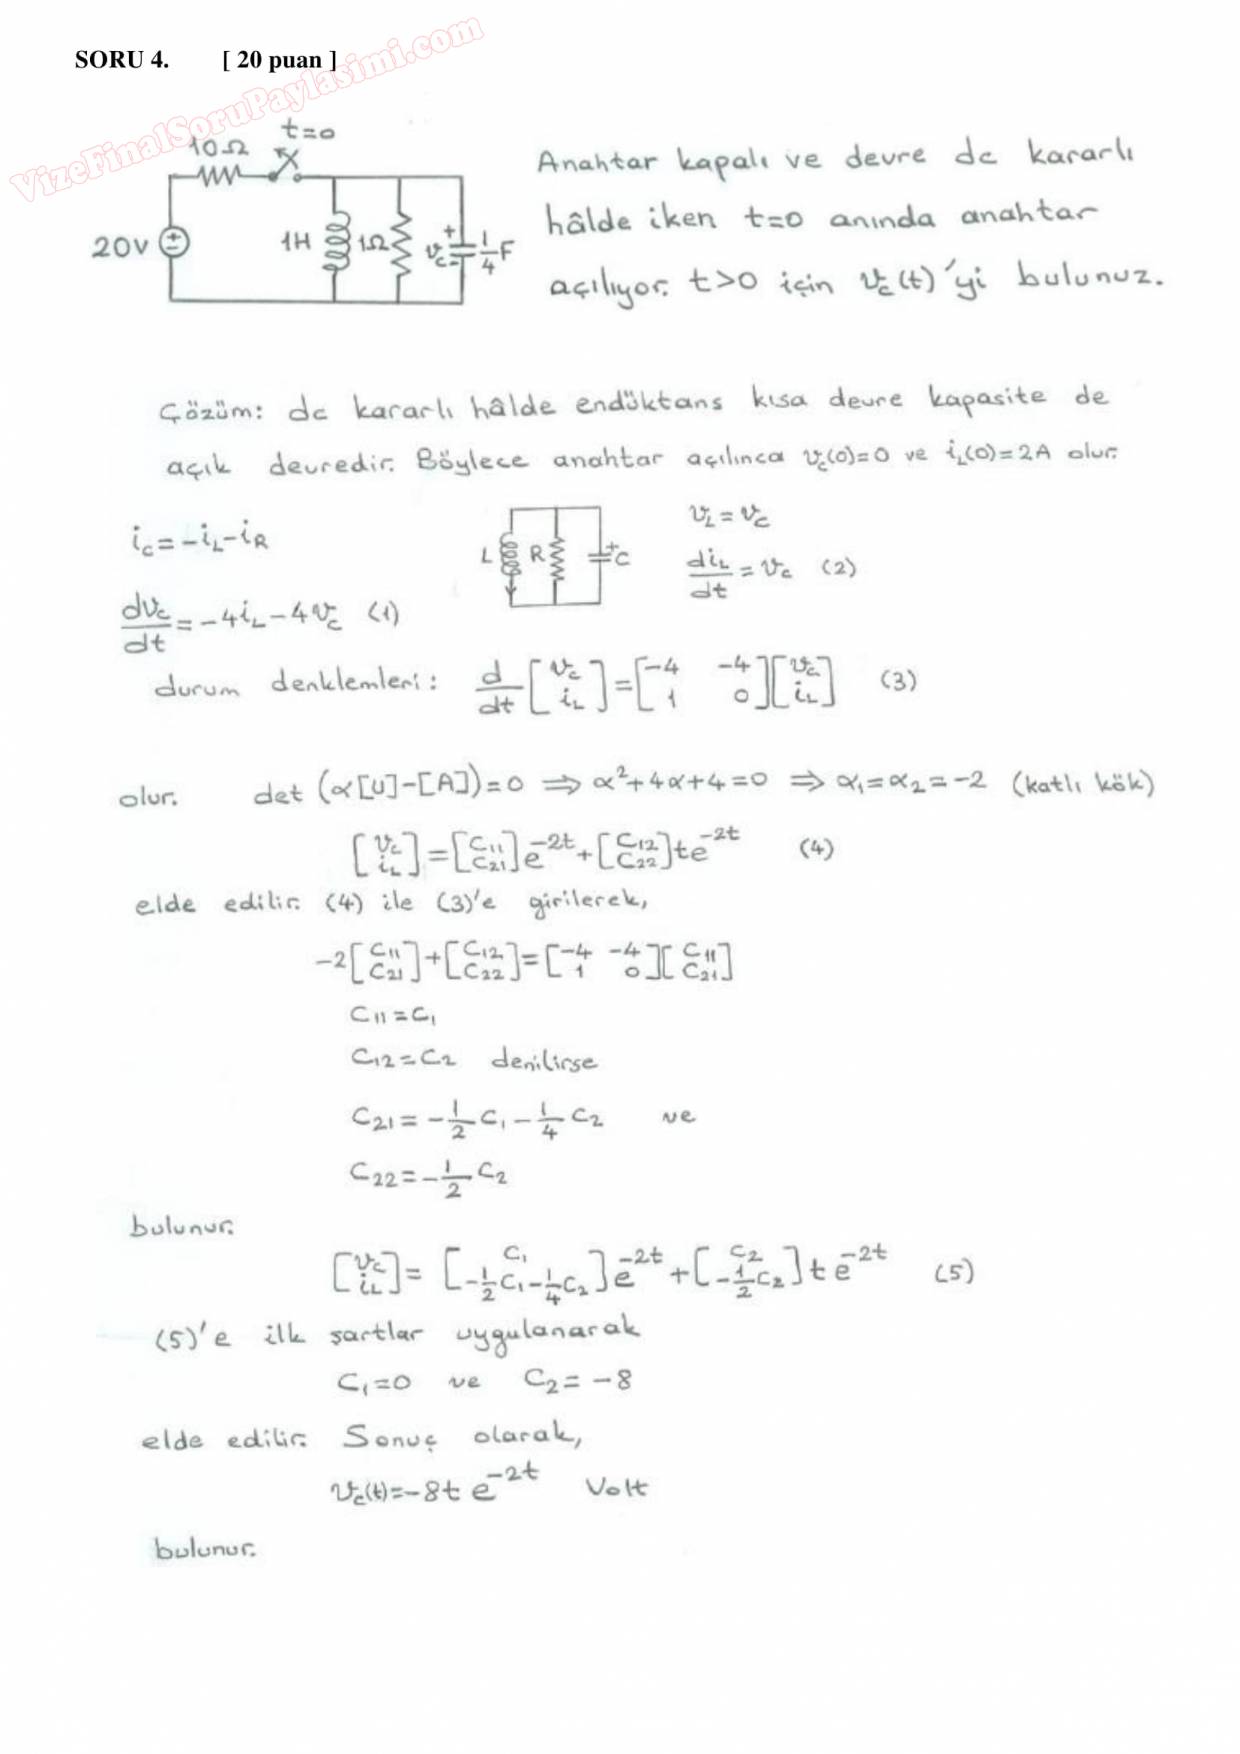 VizeFinalSoruPaylasimi.com
SORU 4. [ 20 puan ]
t=0
10Ω
20V
1H
1Ω
+
v_c
-
1/4 F
Anahtar kapalı ve devre dc kararlı
hâlde iken t=0 anında anahtar
açılıyor. t>0 için v_c(t)'yi bulunuz.
Çözüm: dc kararlı hâlde endüktans kısa devre kapasite de
açık devredir. Böylece anahtar açılınca v_c(0)=0 ve i_L(0)=2A olur.
i_c = -i_L - i_R
L R + C
v_L = v_c
di_L/dt = v_c (2)
dv_c/dt = -4i_L - 4v_c (1)
durum denklemleri: d/dt [v_c; i_L] = [-4 -4; 1 0][v_c; i_L] (3)
olur. det (α[U]-[A])=0 ⇒ α²+4α+4=0 ⇒ α₁=α₂=-2 (katlı kök)
[v_c; i_L] = [C₁₁; C₂₁]e^{-2t} + [C₁₂; C₂₂]te^{-2t} (4)
elde edilir. (4) ile (3)'e girilerek,
-2[C₁₁; C₂₁] + [C₁₂; C₂₂] = [-4 -4; 1 0][C₁₁; C₂₁]
C₁₁ = C₁
C₁₂ = C₂ denilirse
C₂₁ = -1/2 C₁ - 1/4 C₂ ve
C₂₂ = -1/2 C₂
bulunur.
[v_c; i_L] = [C₁; -1/2 C₁ - 1/4 C₂]e^{-2t} + [C₂; -1/2 C₂]te^{-2t} (5)
(5)'e ilk şartlar uygulanarak
C₁=0 ve C₂=-8
elde edilir. Sonuç olarak,
v_c(t)=-8te^{-2t} Volt
bulunur.